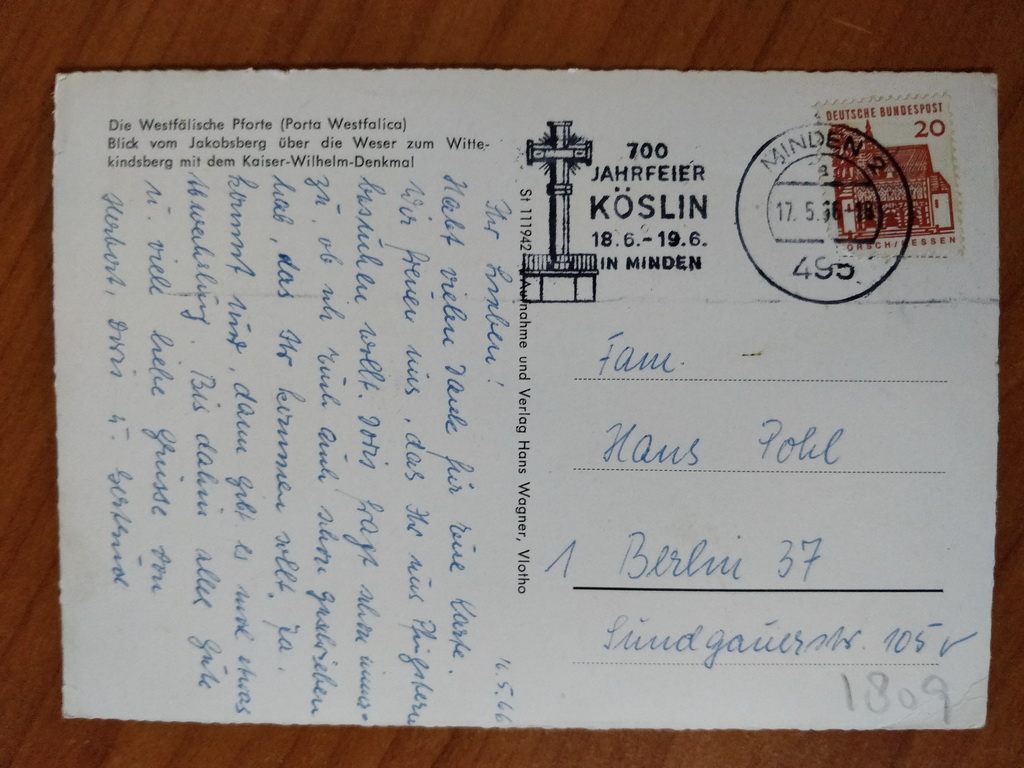 Die Westfälische Pforte (Porta Westfalica)
Blick vom Jakobsberg über die Weser zum Witte-
kindsberg mit dem Kaiser-Wilhelm-Denkmal
16.5.66
Ihr Lieben!
Habt vielen Dank für Eure Karte.
Wir freuen uns, das Ihr uns Pfingsten
besuchen wollt. Doris fragt schon immer
zu, ob ich Euch auch schon geschrieben
hab, das Ihr kommen sollt. Ja,
kommt nur, dann gibt es mal etwas
Abwechslung. Bis dahin alles Gute
u. viele liebe Grüsse von
Herbert, Doris u. Gertrud
St 111942 Aufnahme und Verlag Hans Wagner, Vlotho
700
JAHRFEIER
KÖSLIN
18.6.-19.6.
IN MINDEN
MINDEN 2
17.5.66
495
DEUTSCHE BUNDESPOST
20
LORSCH/HESSEN
Fam.
Hans Pohl
1 Berlin 37
Sundgauerstr. 105
1809